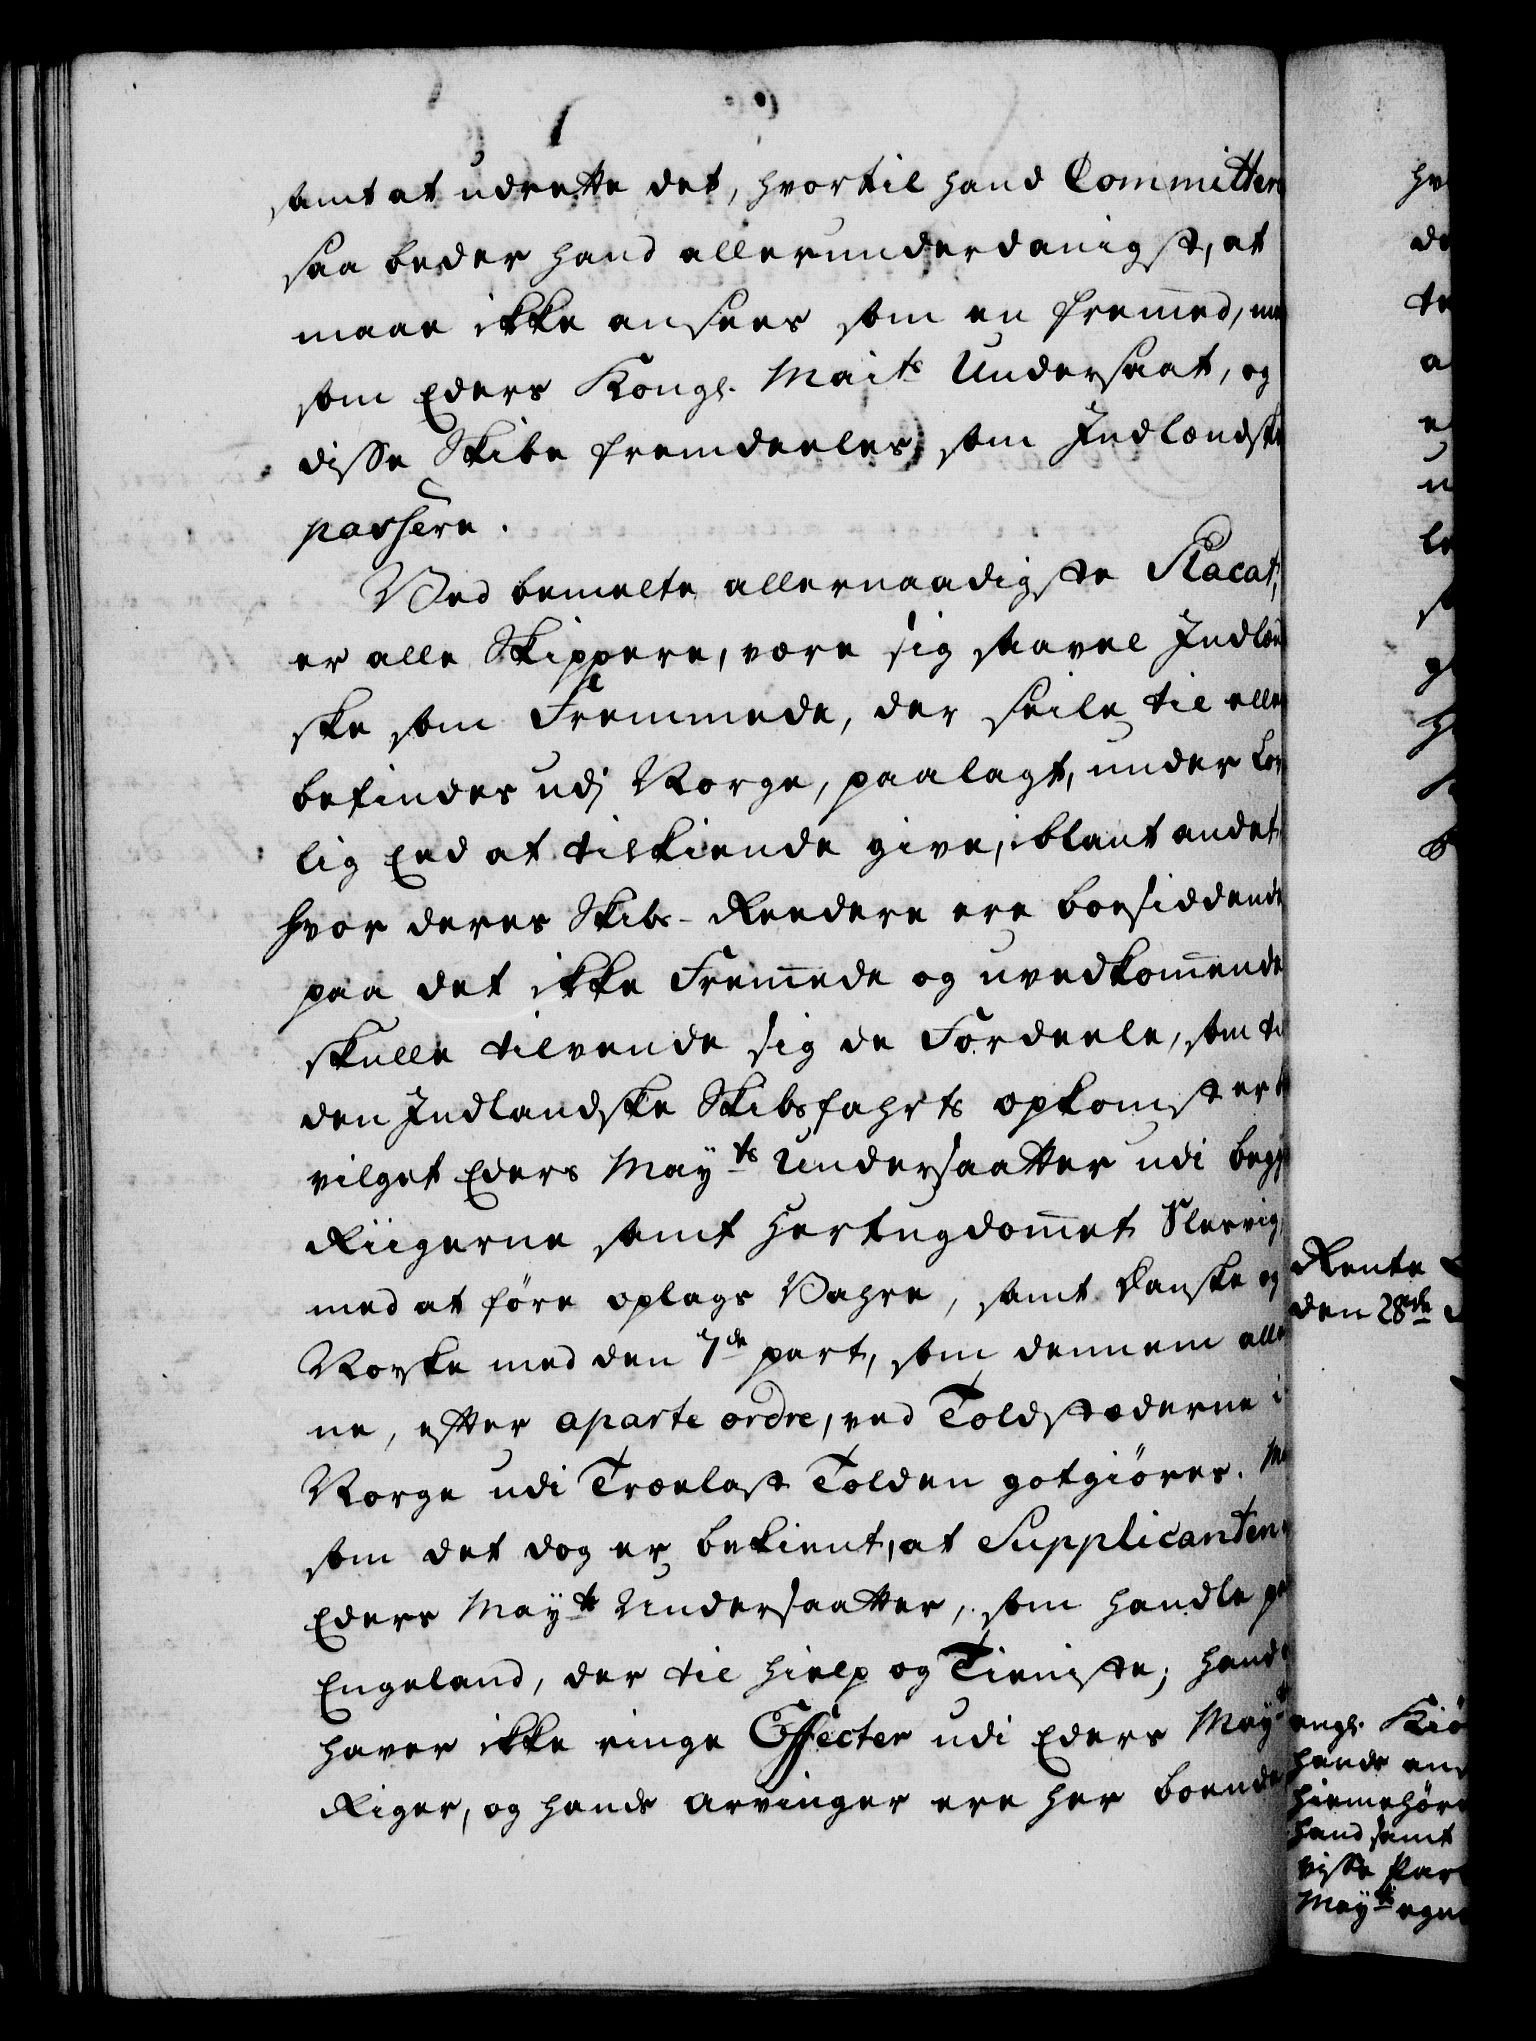 samt at udrette det, hvortil hand Committere
saa beder hand allerunderdanigst, at
maae ikke ansees som en fremed, men
som Eders Kongl. Maits Undersaat, og
disse Skibe fremdeeles som Indlændske
passere.
Ved bemelte allernaadigste Placat,
er alle Skippere, være sig saavel Indlæn
ske som Fremmede, der seile til eller
befindes udj Norge, paalagt, under Lov
lig Eed at tilkiende give, iblant andet
hvor deres Skibs-Reedere ere boesiddende
paa det ikke Fremede og uvedkomende
skulle tilvende sig de Fordeele, som til
den Indlandske Skibsfahrts opkomst er be
vilget Eders Mayts Undersaatter udi begge
Riigerne samt Hertugdomet Slesvig,
med at føre oplags Vahre, samt Danske og
Norske med den 7de part, som dennem alle
ne, efter aparte ordre, ved Toldstæderne i
Norge udi Trælast Tolden gotgiøres. Men
som det dog er bekient, at Supplicanten
Eders Mayts Undersaatter, som handle paa
Engeland, der til hielp og Tieniste; hand
haver ikke ringe Effecter udi Eders Mayts
Riger, og hands Arvinger ere her boende
Rente
den 28de
engl. Kiø
hands
hiemehøre
hand samt
visse Par
Mayts egne